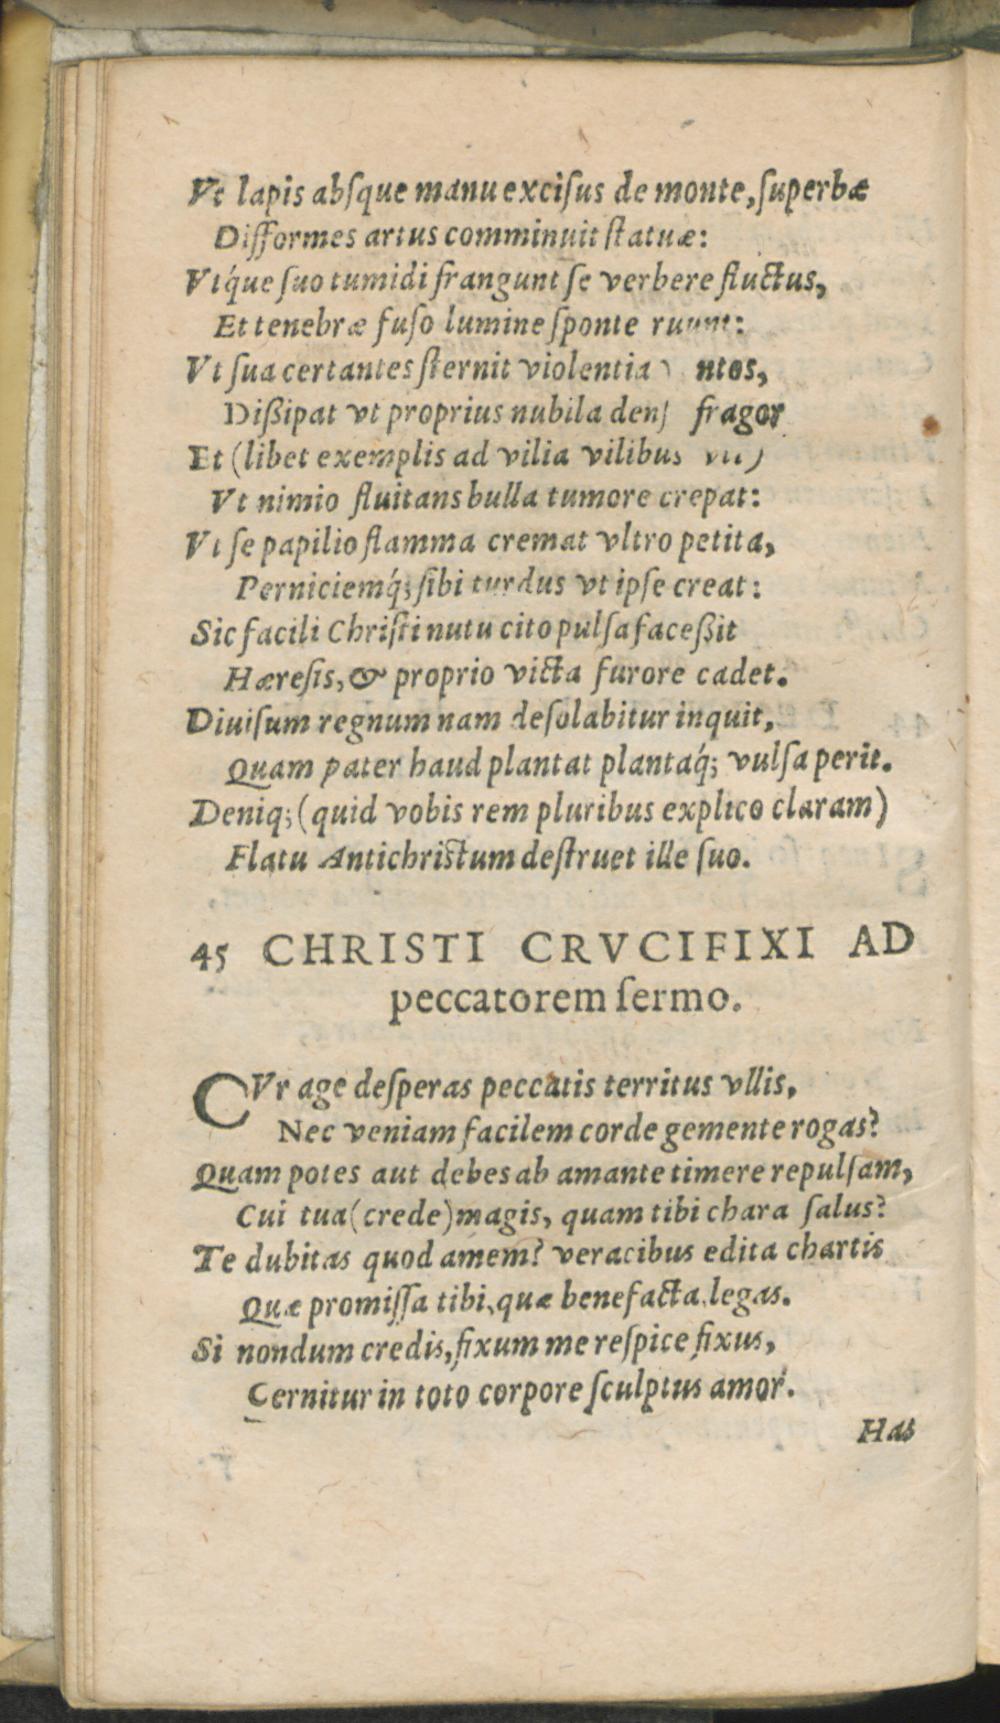 Vt lapis absque manu excisus de monte, superbæ
Difformes artus comminuit statuæ:
Vtq́ue suo tumidi frangunt se verbere fluctus,
Et tenebræ fuso lumine sponte ruunt:
Vt sua certantes sternit violentia ntos,
Dißipat vt proprius nubila fragor
Et (libet exemplis ad vilia vilibus vti)
Vt nimio fluitans bulla tumore crepat:
Vt se papilio flamma cremat vltro petita,
Perniciemq́; sibi turdus vt ipse creat:
Sic facili Christi nutu cito pulsa faceßit
Hæresis, & proprio victa furore cadet.
Diuisum regnum nam desolabitur inquit,
Quam pater haud plantat plantaq́; vulsa perit.
Deniq; (quid vobis rem pluribus explico claram)
Flatu Antichristum destruet ille suo.
45 CHRISTI CRVCIFIXI AD
peccatorem sermo.
CVr age desperas peccatis territus vllis,
Nec veniam facilem corde gemente rogas?
Quam potes aut debes ab amante timere repulsam,
Cui tua (crede) magis, quam tibi chara salus?
Te dubitas quod amem? veracibus edita chartis
Quæ promissa tibi, quæ benefacta legas.
Si nondum credis, fixum me respice fixus,
Cernitur in toto corpore sculptus amor.
Has